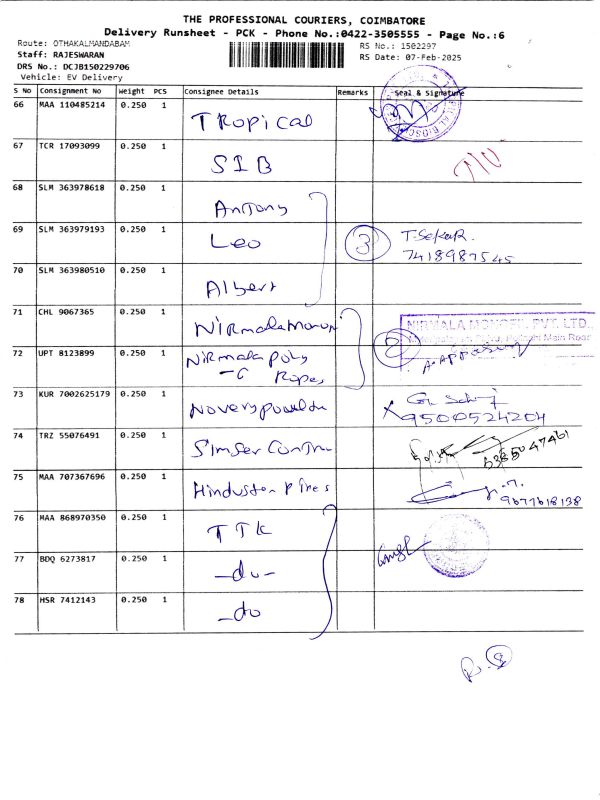 THE PROFESSIONAL COURIERS, COIMBATORE
Delivery Runsheet - PCK - Phone No.:0422-3505555 - Page No.:6
Route: OTHAKALMANDABAM
Staff: RAJESWARAN
DRS No.: DCJB150229706
Vehicle: EV Delivery
RS No.: 1502297
RS Date: 07-Feb-2025
S No Consignment No Weight PCS Consignee Details Remarks Seal & Signature
66 MAA 110485214 0.250 1 TRopical
67 TCR 17093099 0.250 1 SIB
68 SLM 363978618 0.250 1 Antony
69 SLM 363979193 0.250 1 Leo 3 T.Sekar. 7418987545
70 SLM 363980510 0.250 1 Albert
71 CHL 9067365 0.250 1 Nirmala NIRMALA PVT. LTD.,
Main Road
72 UPT 8123899 0.250 1 Nirmala poly 2
-C Ropes
73 KUR 7002625179 0.250 1 9500524204
74 TRZ 55076491 0.250 1 Simser
75 MAA 707367696 0.250 1 Hindustan Pipes 9677618138
76 MAA 868970350 0.250 1 TTK
77 BDQ 6273817 0.250 1 -do-
78 HSR 7412143 0.250 1 -do